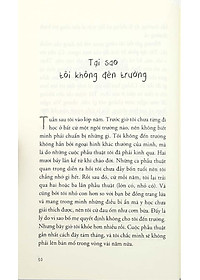 Tại sao
tôi không đến trường
Tuần sau tôi vào lớp năm. Trước giờ tôi chưa từng đi
học ở bất cứ một ngôi trường nào, nên không biết
mình phải chuẩn bị những gì. Tôi không đến trường
không hẳn bởi ngoại hình khác thường của mình, mà
là do những cuộc phẫu thuật tôi đã phải kinh qua. Hai
mươi bảy lần kể từ khi chào đời. Những ca phẫu thuật
quan trọng diễn ra hồi tôi chưa đầy bốn tuổi nên tôi
chẳng nhớ gì. Rồi sau đó, cứ mỗi năm, tôi lại trải
qua hai hoặc ba lần phẫu thuật (lớn có, nhỏ có). Và
cũng bởi tôi nhỏ con hơn so với bạn bè đồng trang
lứa và mang trong mình những điều bí ẩn mà y học chưa
giải thích được, nên tôi cứ đau ốm như cơm bữa. Đấy là
lý do vì sao bố mẹ tôi quyết định không cho tôi đến trường.
Nhưng bây giờ tôi khỏe hơn nhiều rồi. Cuộc phẫu thuật
gần nhất cách đây tám tháng, và tôi chắc mình sẽ không
phải lên bàn mổ trong vòng vài năm nữa.